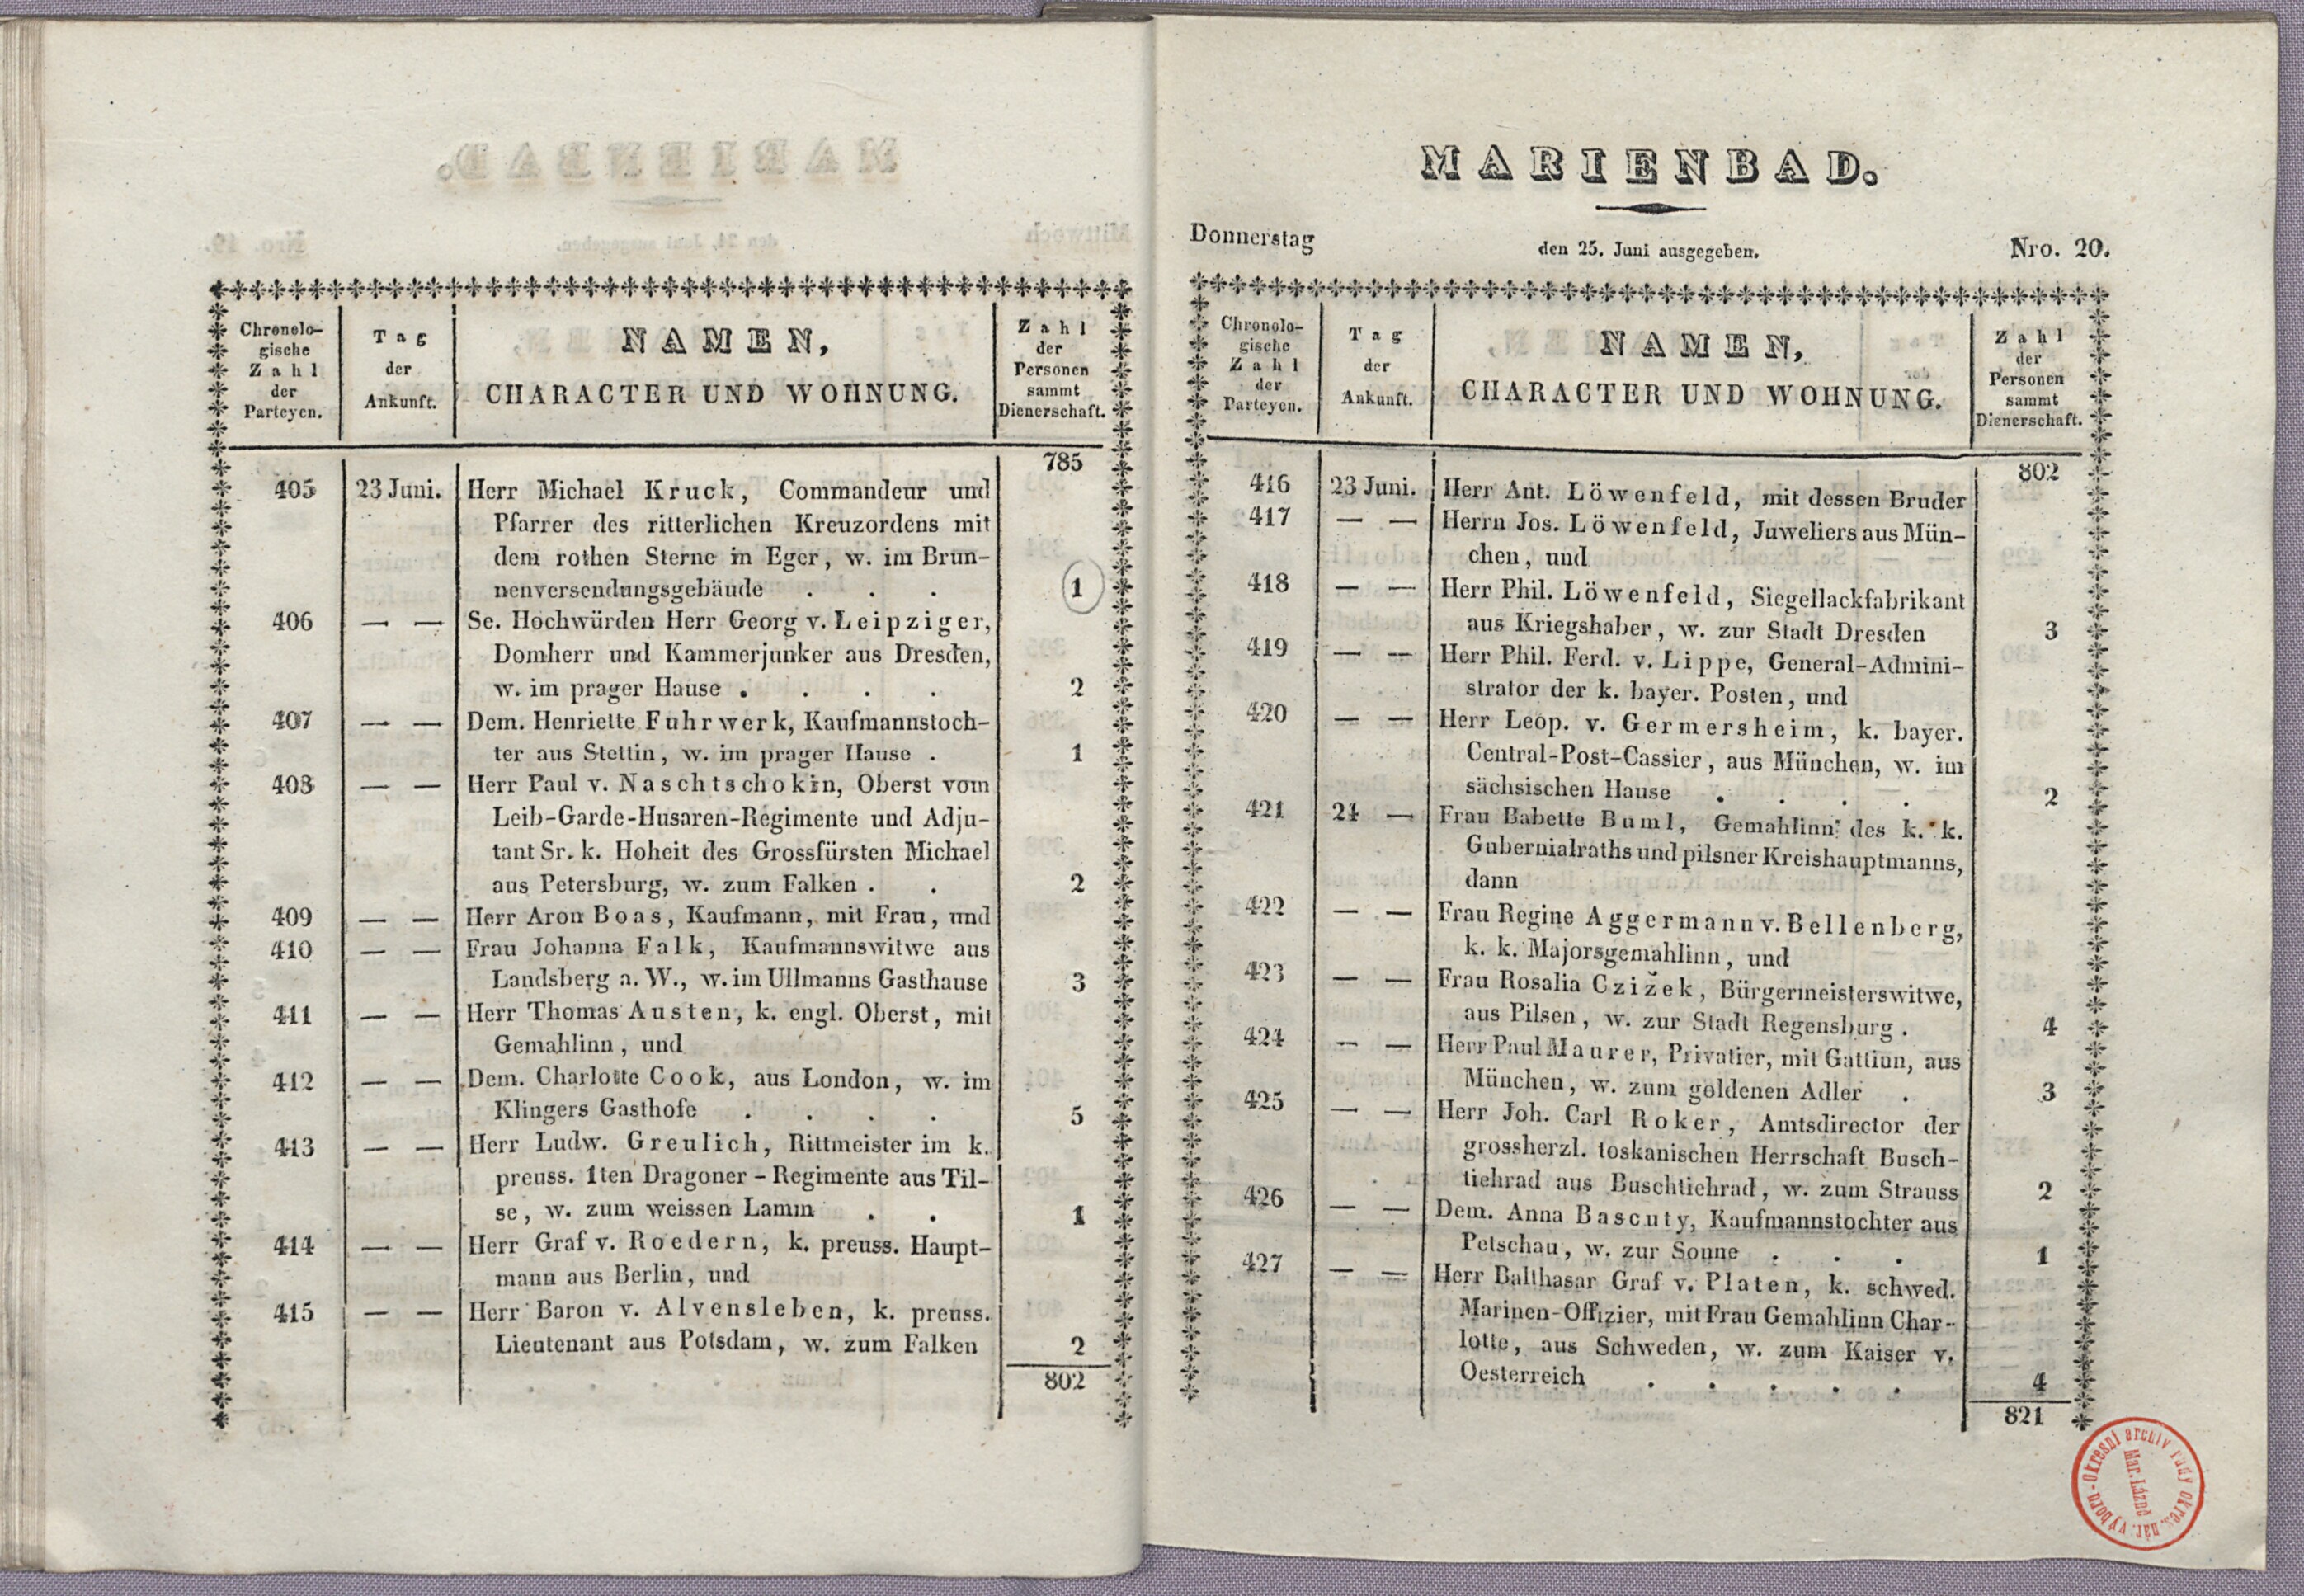 Chronolo-
gische
Zahl
der
Parteyen.
Tag
der
Ankunft.
NAMEN,
CHARACTER UND WOHNUNG.
Zahl
der
Personen
sammt
Dienerschaft.
785
405 23 Juni. Herr Michael Kruck, Commandeur und
Pfarrer des ritterlichen Kreuzordens mit
dem rothen Sterne in Eger, w. im Brun-
nenversendungsgebäude . . . 1
406 — — Se. Hochwürden Herr Georg v. Leipziger,
Domherr und Kammerjunker aus Dresden,
w. im prager Hause . . . . 2
407 — — Dem. Henriette Fuhrwerk, Kaufmannstoch-
ter aus Stettin, w. im prager Hause . 1
408 — — Herr Paul v. Naschtschokin, Oberst vom
Leib-Garde-Husaren-Regimente und Adju-
tant Sr. k. Hoheit des Grossfürsten Michael
aus Petersburg, w. zum Falken . . 2
409 — — Herr Aron Boas, Kaufmann, mit Frau, und
410 — — Frau Johanna Falk, Kaufmannswitwe aus
Landsberg a. W., w. im Ullmanns Gasthause 3
411 — — Herr Thomas Austen, k. engl. Oberst, mit
Gemahlinn, und
412 — — Dem. Charlotte Cook, aus London, w. im
Klingers Gasthofe . . . . 5
413 — — Herr Ludw. Greulich, Rittmeister im k.
preuss. 1ten Dragoner-Regimente aus Til-
se, w. zum weissen Lamm . . 1
414 — — Herr Graf v. Roedern, k. preuss. Haupt-
mann aus Berlin, und
415 — — Herr Baron v. Alvensleben, k. preuss.
Lieutenant aus Potsdam, w. zum Falken 2
802
MARIENBAD.
Donnerstag den 25. Juni ausgegeben. Nro. 20.
Chronolo-
gische
Zahl
der
Parteyen.
Tag
der
Ankunft.
NAMEN,
CHARACTER UND WOHNUNG.
Zahl
der
Personen
sammt
Dienerschaft.
802
416 23 Juni. Herr Ant. Löwenfeld, mit dessen Bruder
417 — — Herrn Jos. Löwenfeld, Juweliers aus Mün-
chen, und
418 — — Herr Phil. Löwenfeld, Siegellackfabrikant
aus Kriegshaber, w. zur Stadt Dresden 3
419 — — Herr Phil. Ferd. v. Lippe, General-Admini-
strator der k. bayer. Posten, und
420 — — Herr Leop. v. Germersheim, k. bayer.
Central-Post-Cassier, aus München, w. im
sächsischen Hause . . . . 2
421 24 — Frau Babette Buml, Gemahlinn des k. k.
Gubernialraths und pilsner Kreishauptmanns,
dann
422 — — Frau Regine Aggermann v. Bellenberg,
k. k. Majorsgemahlinn, und
423 — — Frau Rosalia Czižek, Bürgermeisterswitwe,
aus Pilsen, w. zur Stadt Regensburg . 4
424 — — Herr Paul Maurer, Privatier, mit Gattinn, aus
München, w. zum goldenen Adler . 3
425 — — Herr Joh. Carl Roker, Amtsdirector der
grossherzl. toskanischen Herrschaft Busch-
tiehrad aus Buschtiehrad, w. zum Strauss 2
426 — — Dem. Anna Bascuty, Kaufmannstochter aus
Petschau, w. zur Sonne . . . 1
427 — — Herr Balthasar Graf v. Platen, k. schwed.
Marinen-Offizier, mit Frau Gemahlinn Char-
lotte, aus Schweden, w. zum Kaiser v.
Oesterreich . . . . . 4
821
Okresní archiv rady okres. nár. výboru
Mar. Lázně